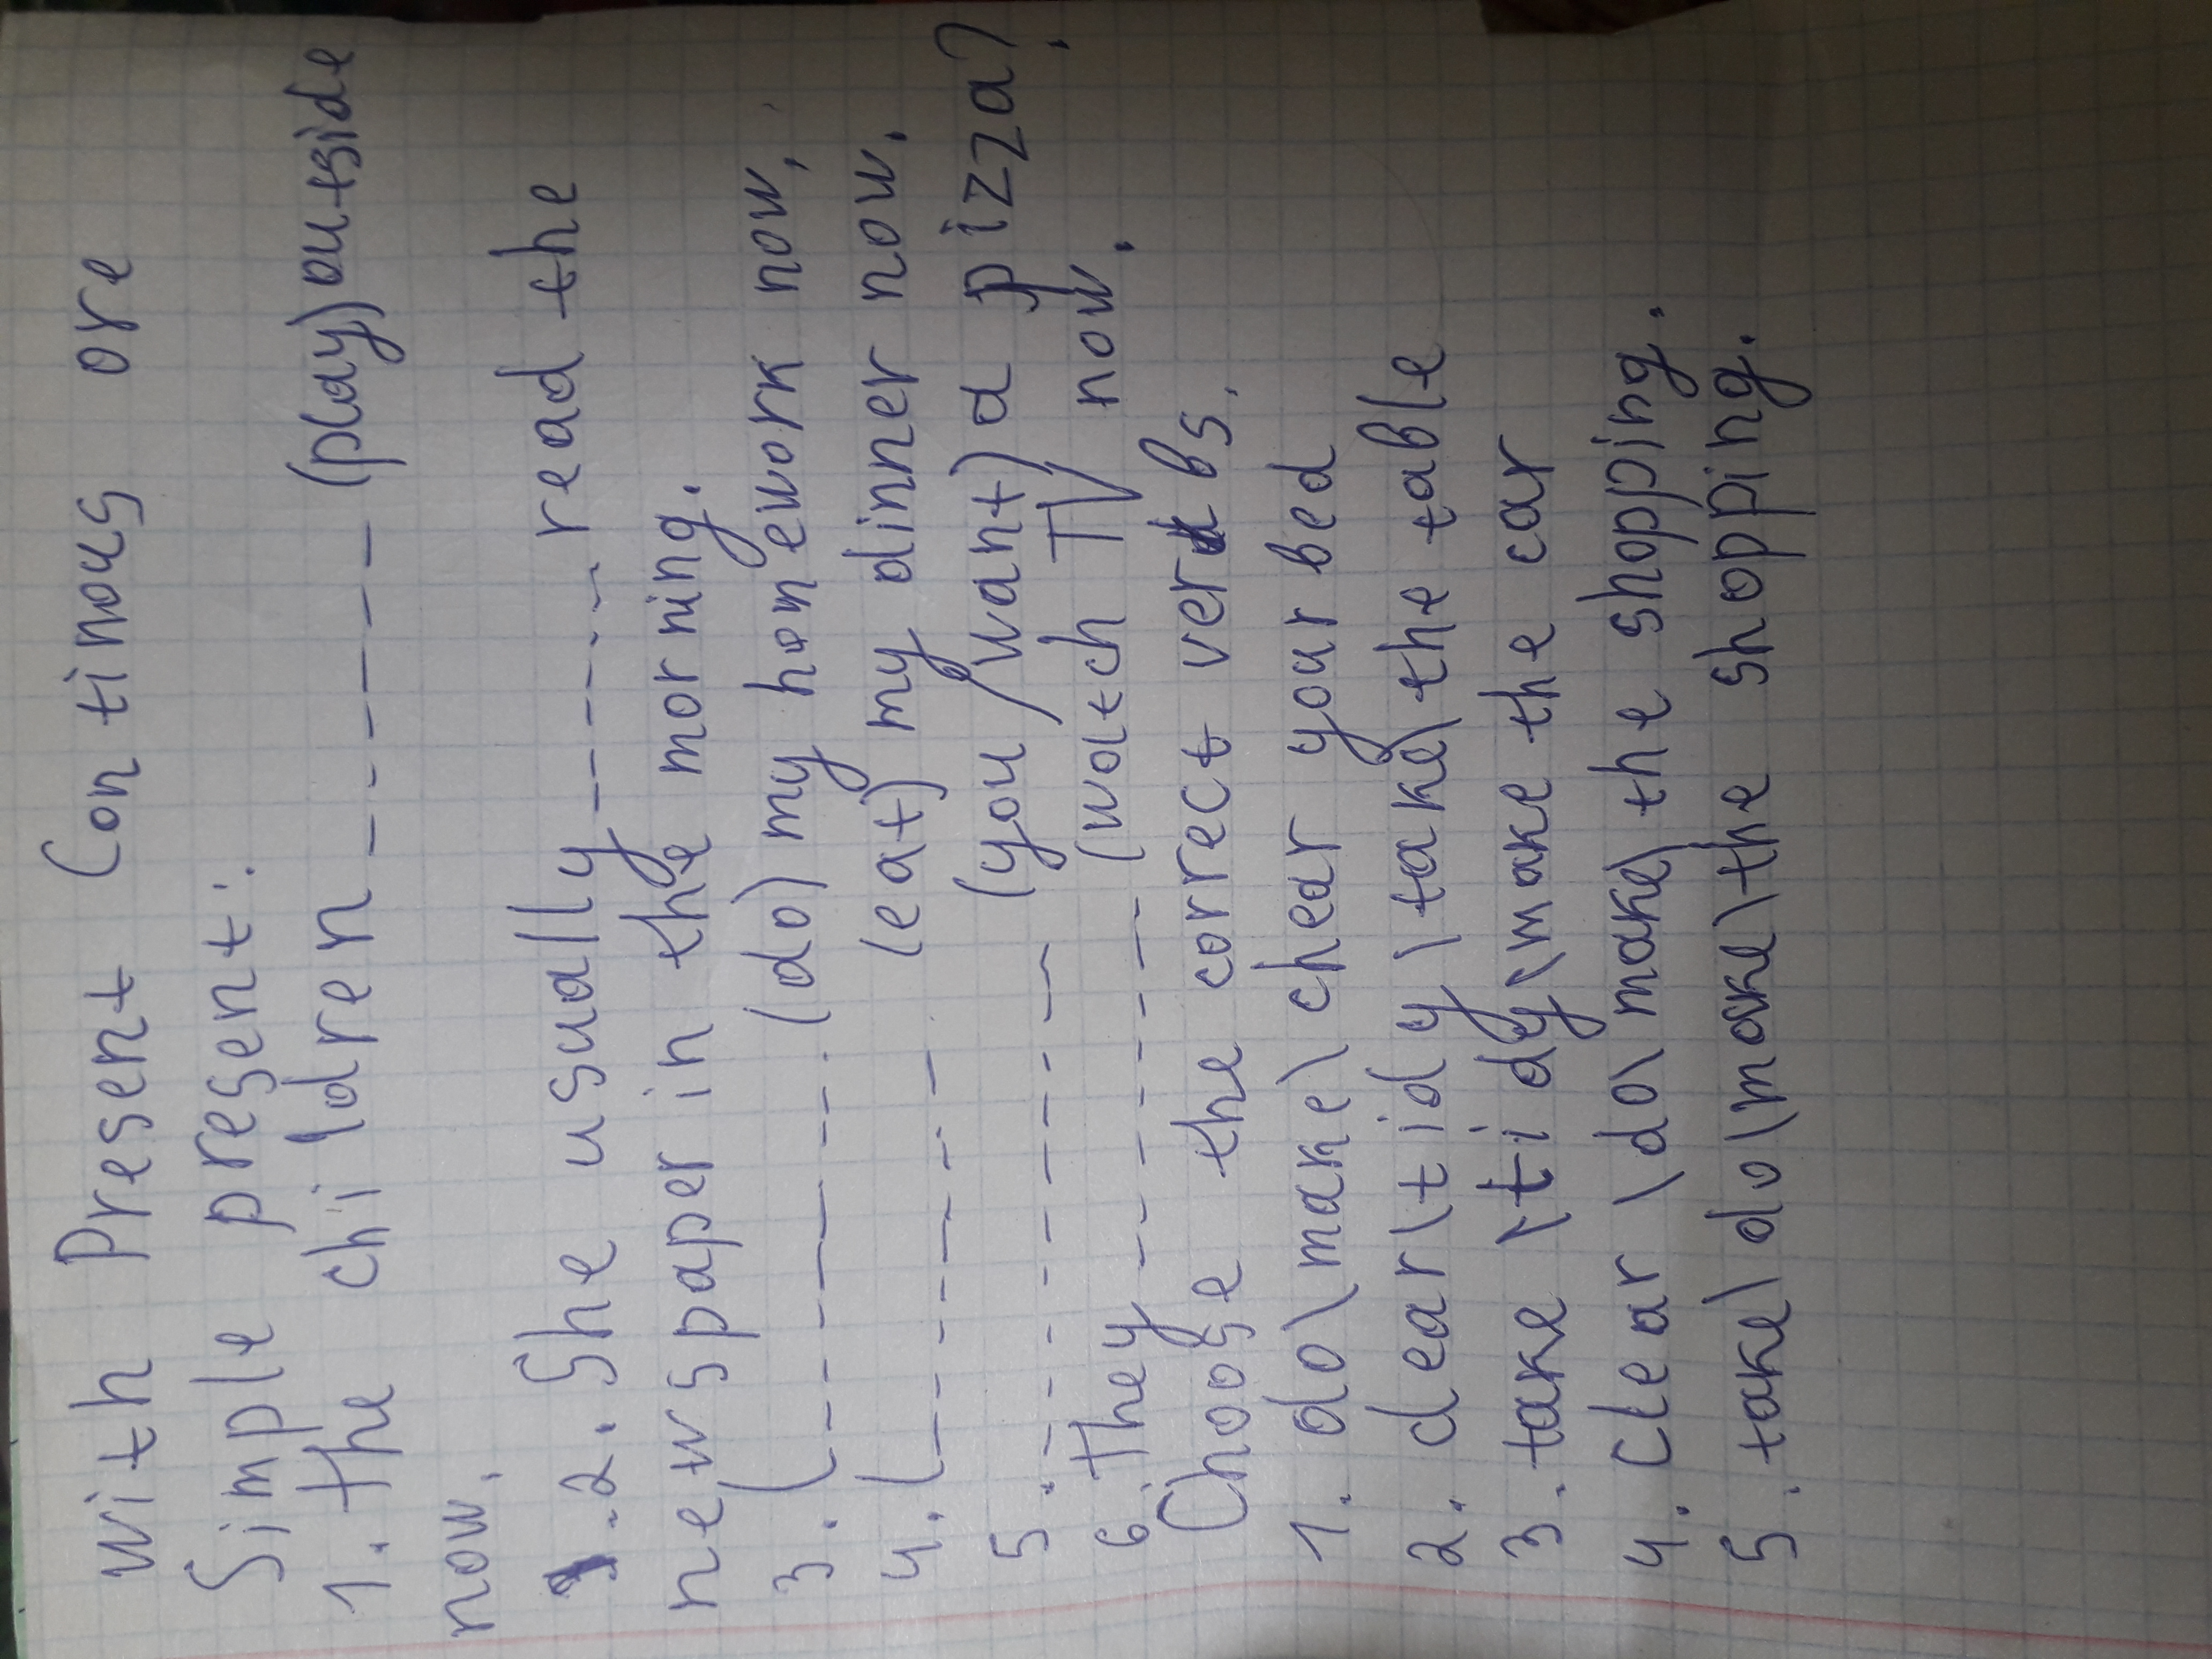 with Present Continous ore
Simple present:
1. the children ------- (play) outside
now.
2. She usually ------ read the
newspaper in the morning.
3. (------- (do) my homework now.
4. (------- (eat) my dinner now.
5. --------- (you / want) a pizza?
6. they ------- (watch TV now.
Choose the correct verbs.
1. do \ make \ chear your bed
2. clear \ tidy \ take \ the table
3. take \ tidy \ make the car
4. Clear \ do \ make \ the shopping.
5. take \ do \ make \ the shopping.